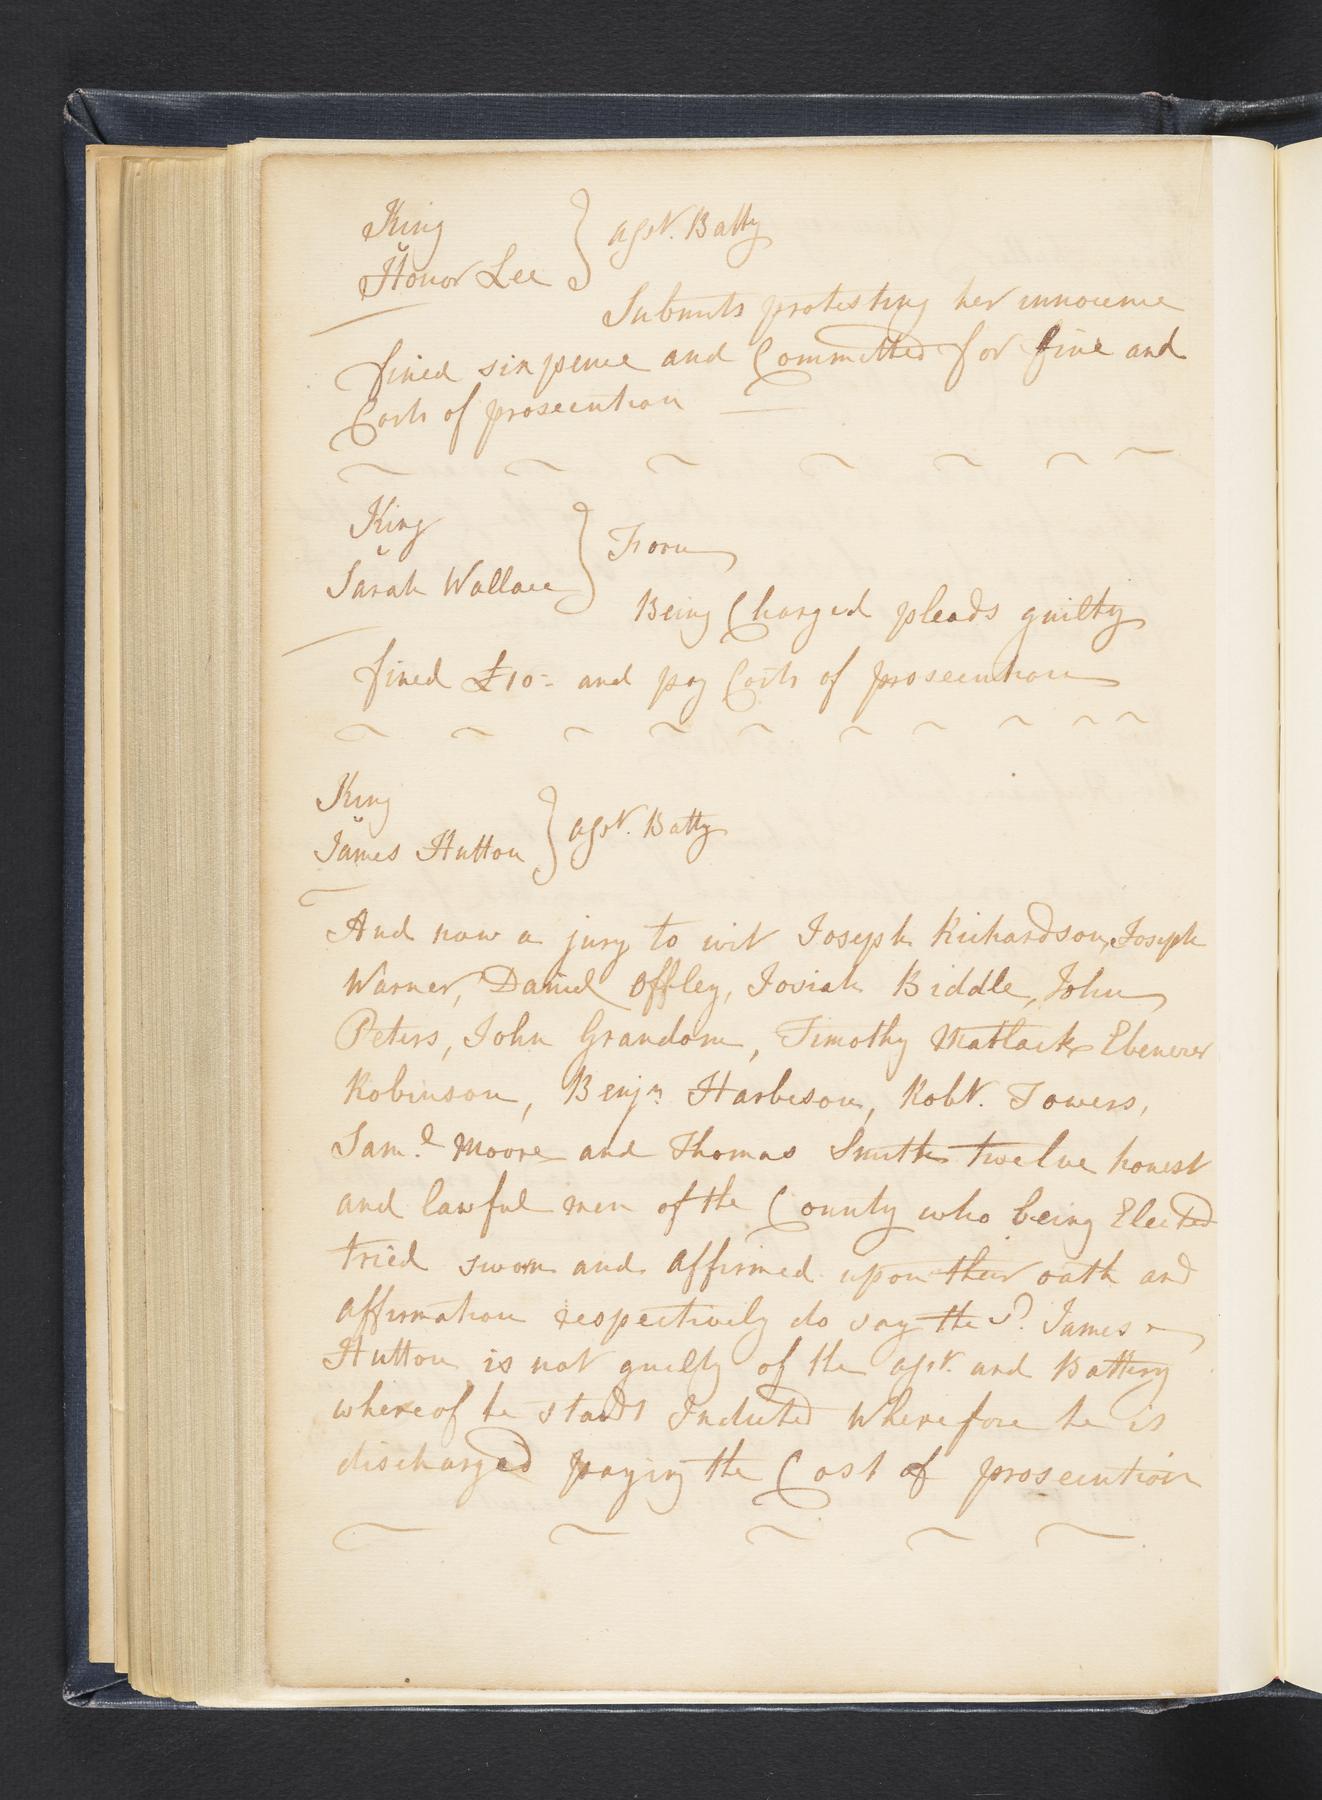 King
v
Honor Lee } asst. Batty
Submits protesting her innocence
fined six pence and Committed for fine and
Costs of prosecution
King
v
Sarah Wallace } Forn
Being Charged pleads guilty
fined £10 = and pay Costs of prosecution
King
v
James Hutton } asst. Batty
And now a jury to wit Joseph Richardson, Joseph
Warner, Daniel Offley, Josiah Biddle, John
Peters, John Grandom, Timothy Matlack Ebenezer
Robinson, Benjn. Harbeson, Robt. Towers,
Saml. Moore and Thomas Smith twelve honest
and lawful men of the County who being Elected
tried sworn and affirmed upon their oath and
affirmation respectively do say the sd. James
Hutton is not guilty of the asst. and Battery
whereof he stands Indicted Wherefore he is
discharged paying the Cost of prosecution